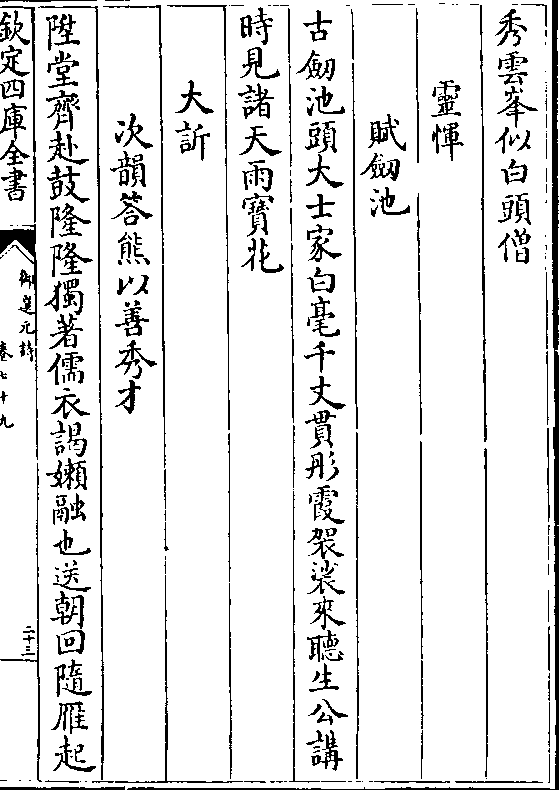 秀雲峯似白頭僧
靈惲
賦劒池
古劒池頭大士家白毫千丈貫彤霞袈裟來聽生公講
時見諸天雨寶花
大訢
次韻答熊以善秀才
陞堂齊赴鼓隆隆獨著儒衣謁嬾融也送朝回隨雁起
欽定四庫全書
御選元詩
卷七十九
二十三